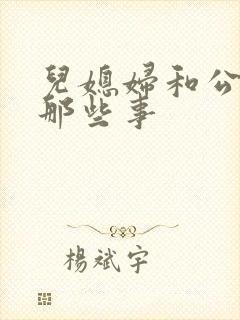 兒媳婦和公
那些事
楊斌宇